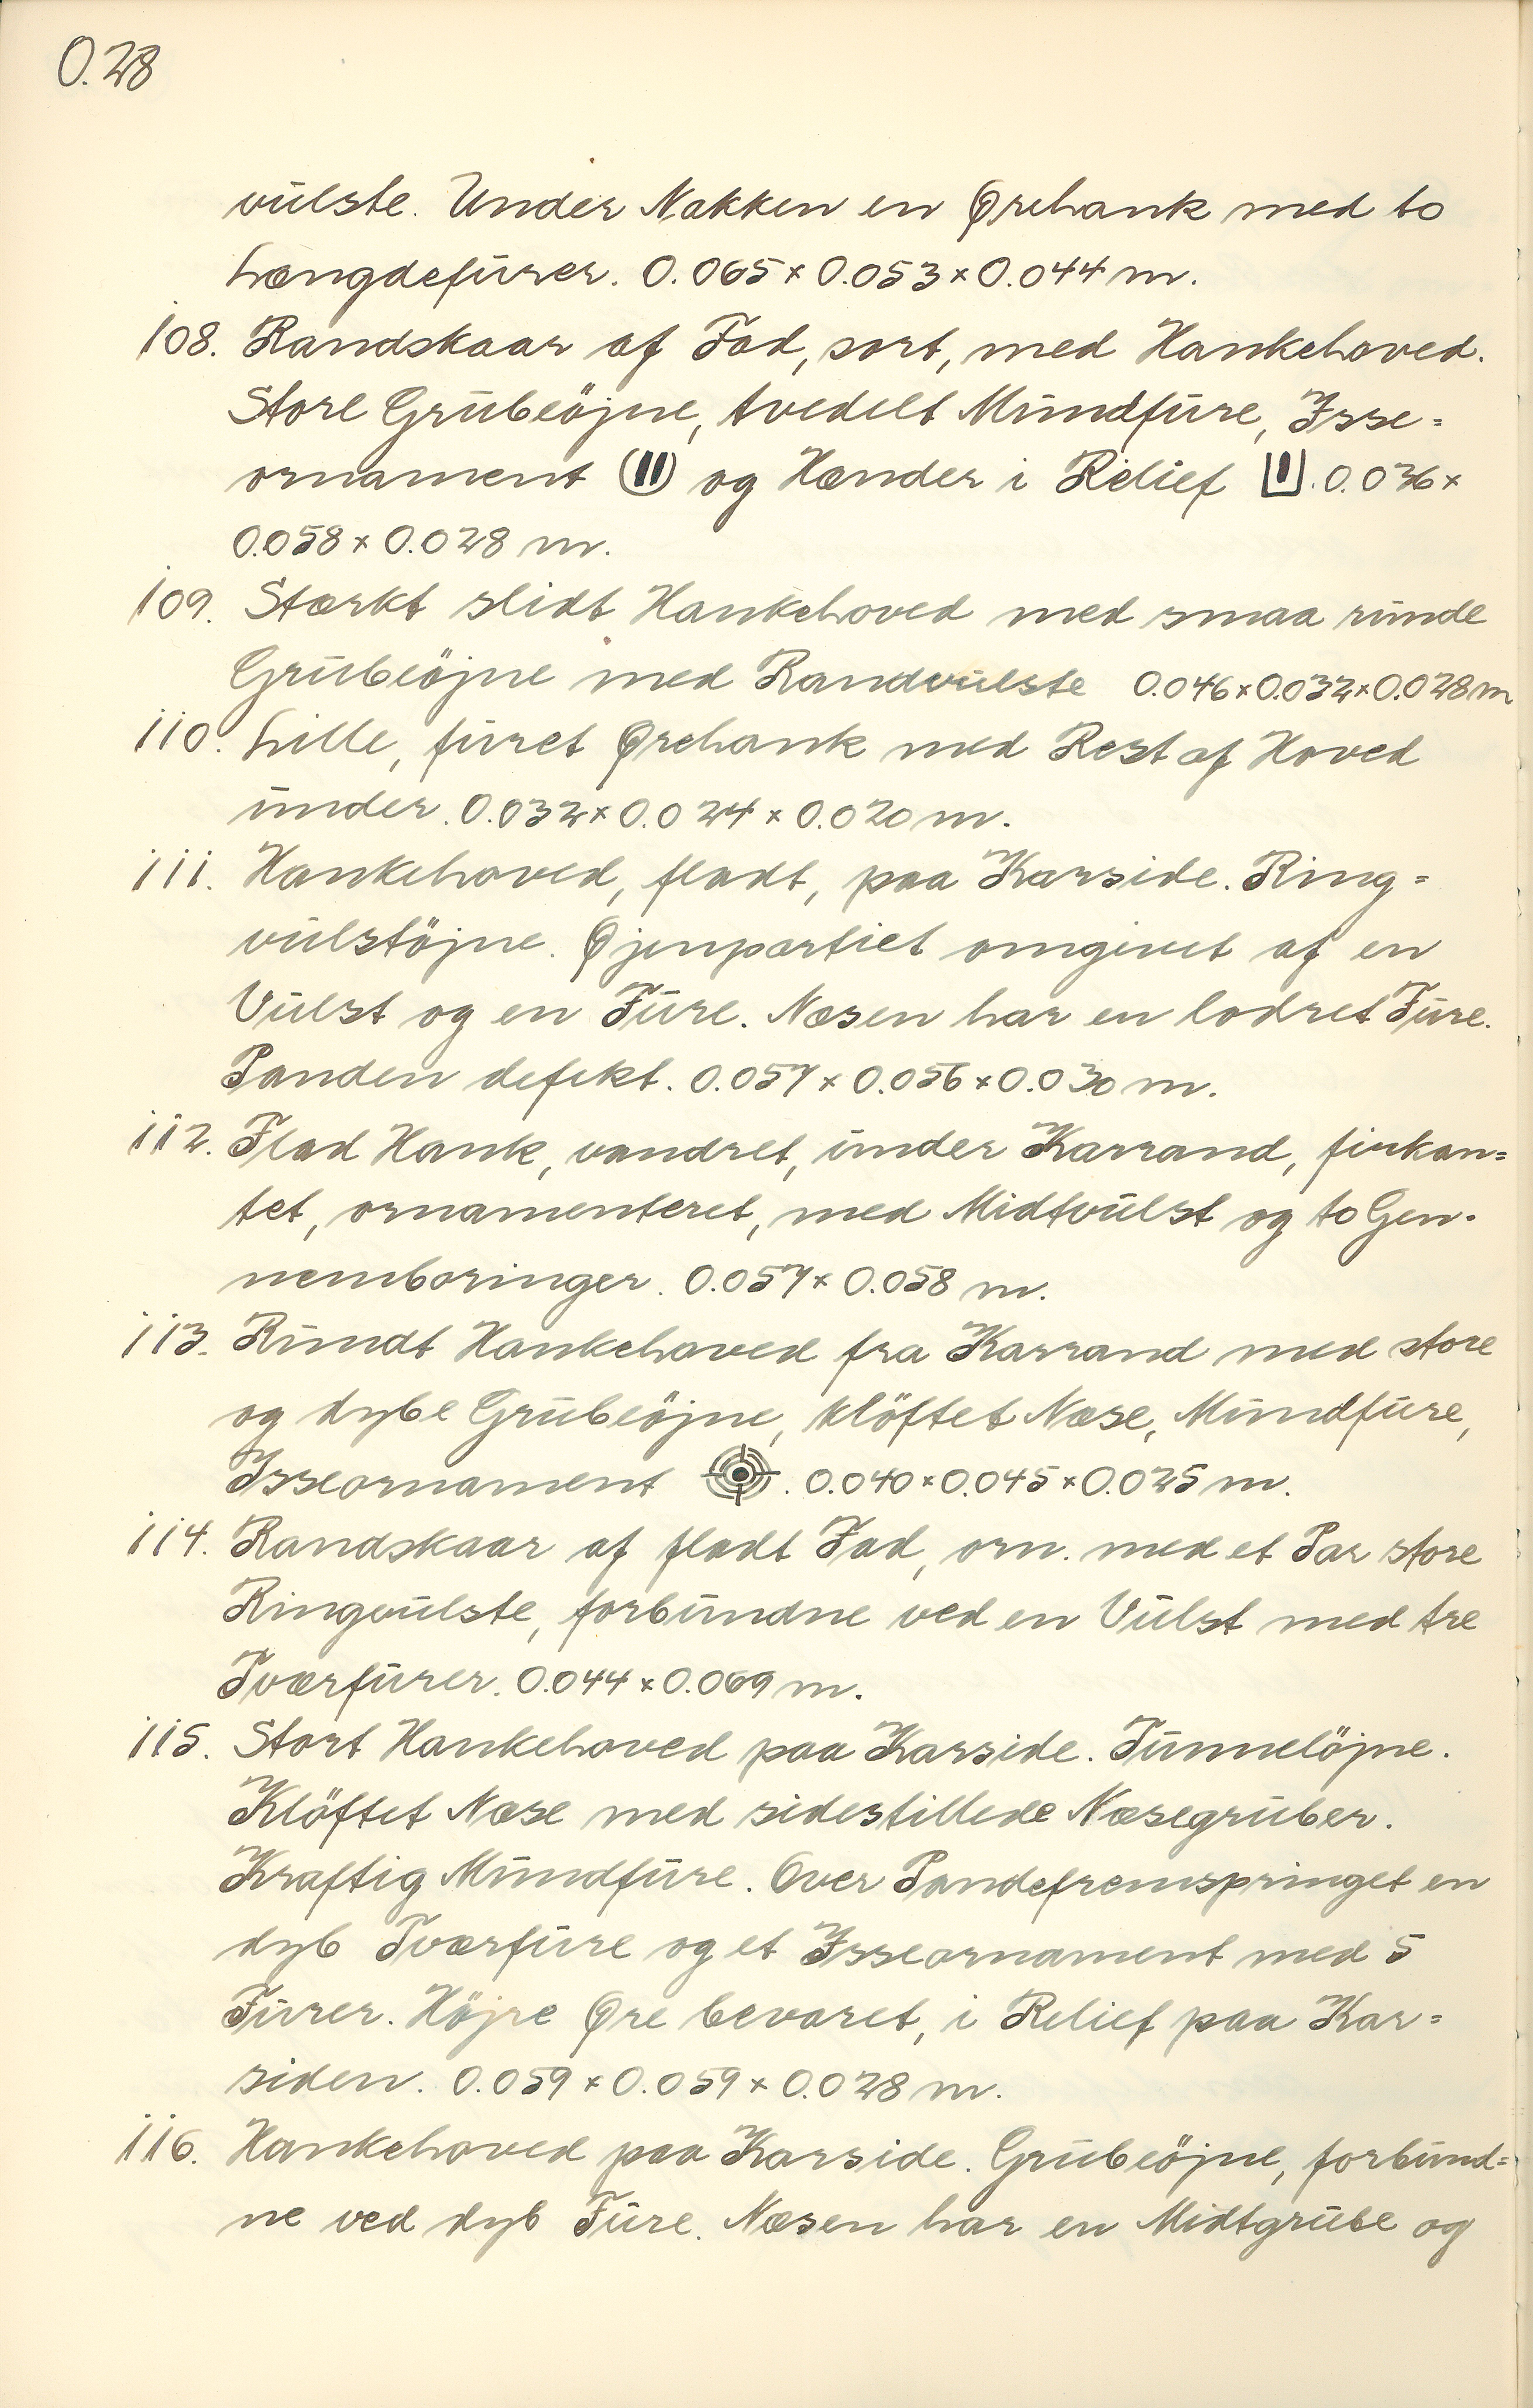 O.28
vulste. Under Nakken en Ørehank med to
Længdefurer. 0.065 x 0.053 x 0.044 m.
108. Randskaar af Fad, sort, med Hankehoved.
Store Grubeöjne, tvedelt Mundfure, Isse=
ornament og Hænder i Relief . 0.036 x
0.058 x 0.028 m.
109. Stærkt slidt Hankehoved med smaa runde
Grubeöjne med Randvulste 0.046 x 0.032 x 0.028 m
110. Lille, furet Ørehank med Rest af Hoved
under. 0.032 x 0.024 x 0.020 m.
111. Hankehoved, fladt, paa Karside. Ring=
vulstöjne. Øjenpartiet omgivet af en
Vulst og en Fure. Næsen har en lodret Fure.
Panden defekt. 0.057 x 0.056 x 0.030 m.
112. Flad Hank, vandret, under Karrand, firkan=
tet, ornamenteret, med Midtvulst og to Gen-
nemboringer. 0.057 x 0.058 m.
113. Rundt Hankehoved fra Karrand med store
og dybe Grubeöjne, klöftet Næse, Mundfure,
Isseornament . 0.040 x 0.045 x 0.025 m.
114. Randskaar af fladt Fad, orn. med et Par store
Ringvulste, forbundne ved en Vulst med tre
Tværfurer. 0.044 x 0.069 m.
115. Stort Hankehoved paa Karside. Tunnelöjne.
Klöftet Næse med sidestillede Næsegruber.
Kraftig Mundfure. Over Pandefremspringet en
dyb Tværfure og et Isseornament med 5
Furer. Höjre Øre bevaret, i Relief paa Kar=
siden. 0.059 x 0.059 x 0.028 m.
116. Hankehoved paa Karside. Grubeöjne, forbund=
ne ved dyb Fure. Næsen har en Midtgrube og